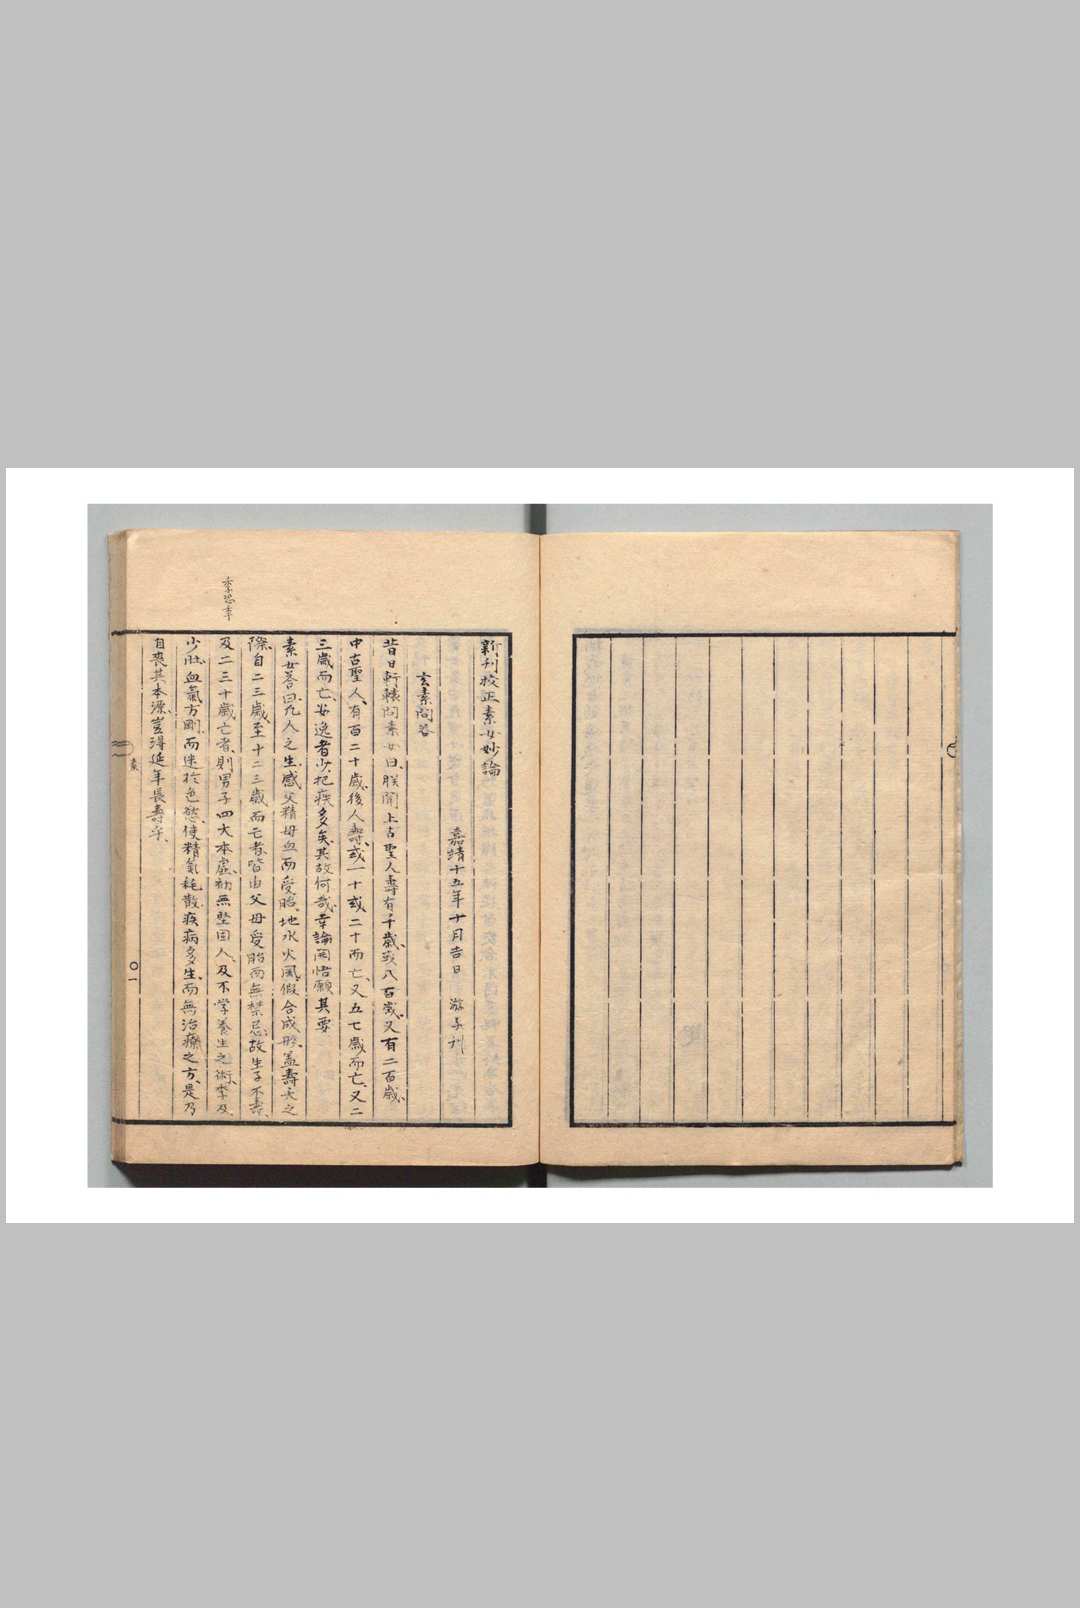 新刊校正素女妙論
嘉靖十五年十月吉日 游子刊
玄素問答
昔日軒轅問素女曰、朕聞上古聖人壽有千歲、或八百歲、又有二百歲、
中古聖人、有百二十歲、後人壽、或一十或二十而亡、又五七歲而亡、又二
三歲而亡、安逸者少、抱疾多矣、其故何哉、幸論開悟、願其要
素女答曰、凡人之生、感父精母血而受胎、地水火風、假合成形、蓋壽夭之
際、自二三歲、至十二三歲而亡者、皆由父母受胎而無禁忌、故生子不壽、
及二三十歲亡者、則男子四大本虛、初無堅固人、及不學養生之術、季及
少壯、血氣方剛、而迷於色慾、使精氣耗散、疾病多生、而無治療之方、是乃
自喪其本源、豈得延年長壽乎、
季恐年
素
〇一